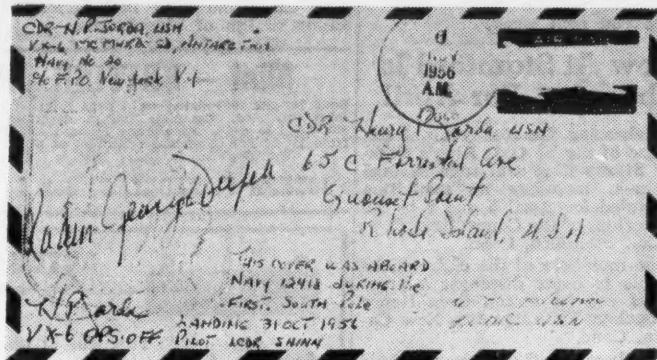 CDR. H.P. JORDA, USN
VX-6 McMURDO SD, ANTARCTICA
NAVY NO 20
c/o F.P.O. New York N.Y.
1956
A.M.
CDR Henry P. Jorda USN
65 C Forrestal Ave
Quonset Point
Rhode Island, U.S.A
Radm George Dufek
THIS COVER WAS ABOARD
NAVY 12418 DURING the
FIRST SOUTH Pole
LANDING 31 OCT 1956
PILOT LCDR SHINN
H P Jorda
VX-6 OPS. OFF.
USN